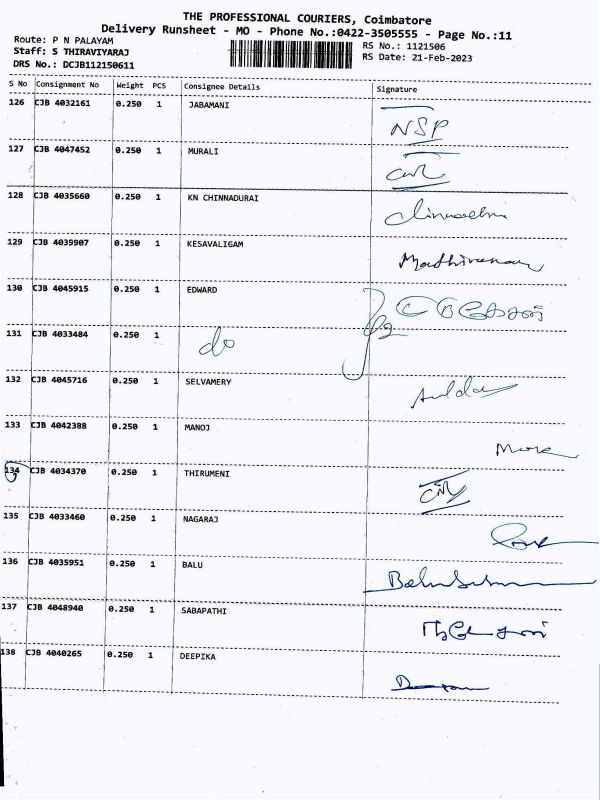 THE PROFESSIONAL COURIERS, Coimbatore
Delivery Runsheet - MO - Phone No.:0422-3505555 - Page No.:11
Route: P N PALAYAM
RS No.: 1121506
Staff: S THIRAVIYARAJ
RS Date: 21-Feb-2023
DRS No.: DCJB112150611
S No Consignment No Weight PCS Consignee Details Signature
126 CJB 4032161 0.250 1 JABAMANI NSP
127 CJB 4047452 0.250 1 MURALI
128 CJB 4035660 0.250 1 KN CHINNADURAI
129 CJB 4039907 0.250 1 KESAVALIGAM
130 CJB 4045915 0.250 1 EDWARD
131 CJB 4033484 0.250 1 do
132 CJB 4045716 0.250 1 SELVAMERY
133 CJB 4042388 0.250 1 MANOJ
134 CJB 4034370 0.250 1 THIRUMENI
135 CJB 4033460 0.250 1 NAGARAJ
136 CJB 4035951 0.250 1 BALU
137 CJB 4048940 0.250 1 SABAPATHI
138 CJB 4040265 0.250 1 DEEPIKA